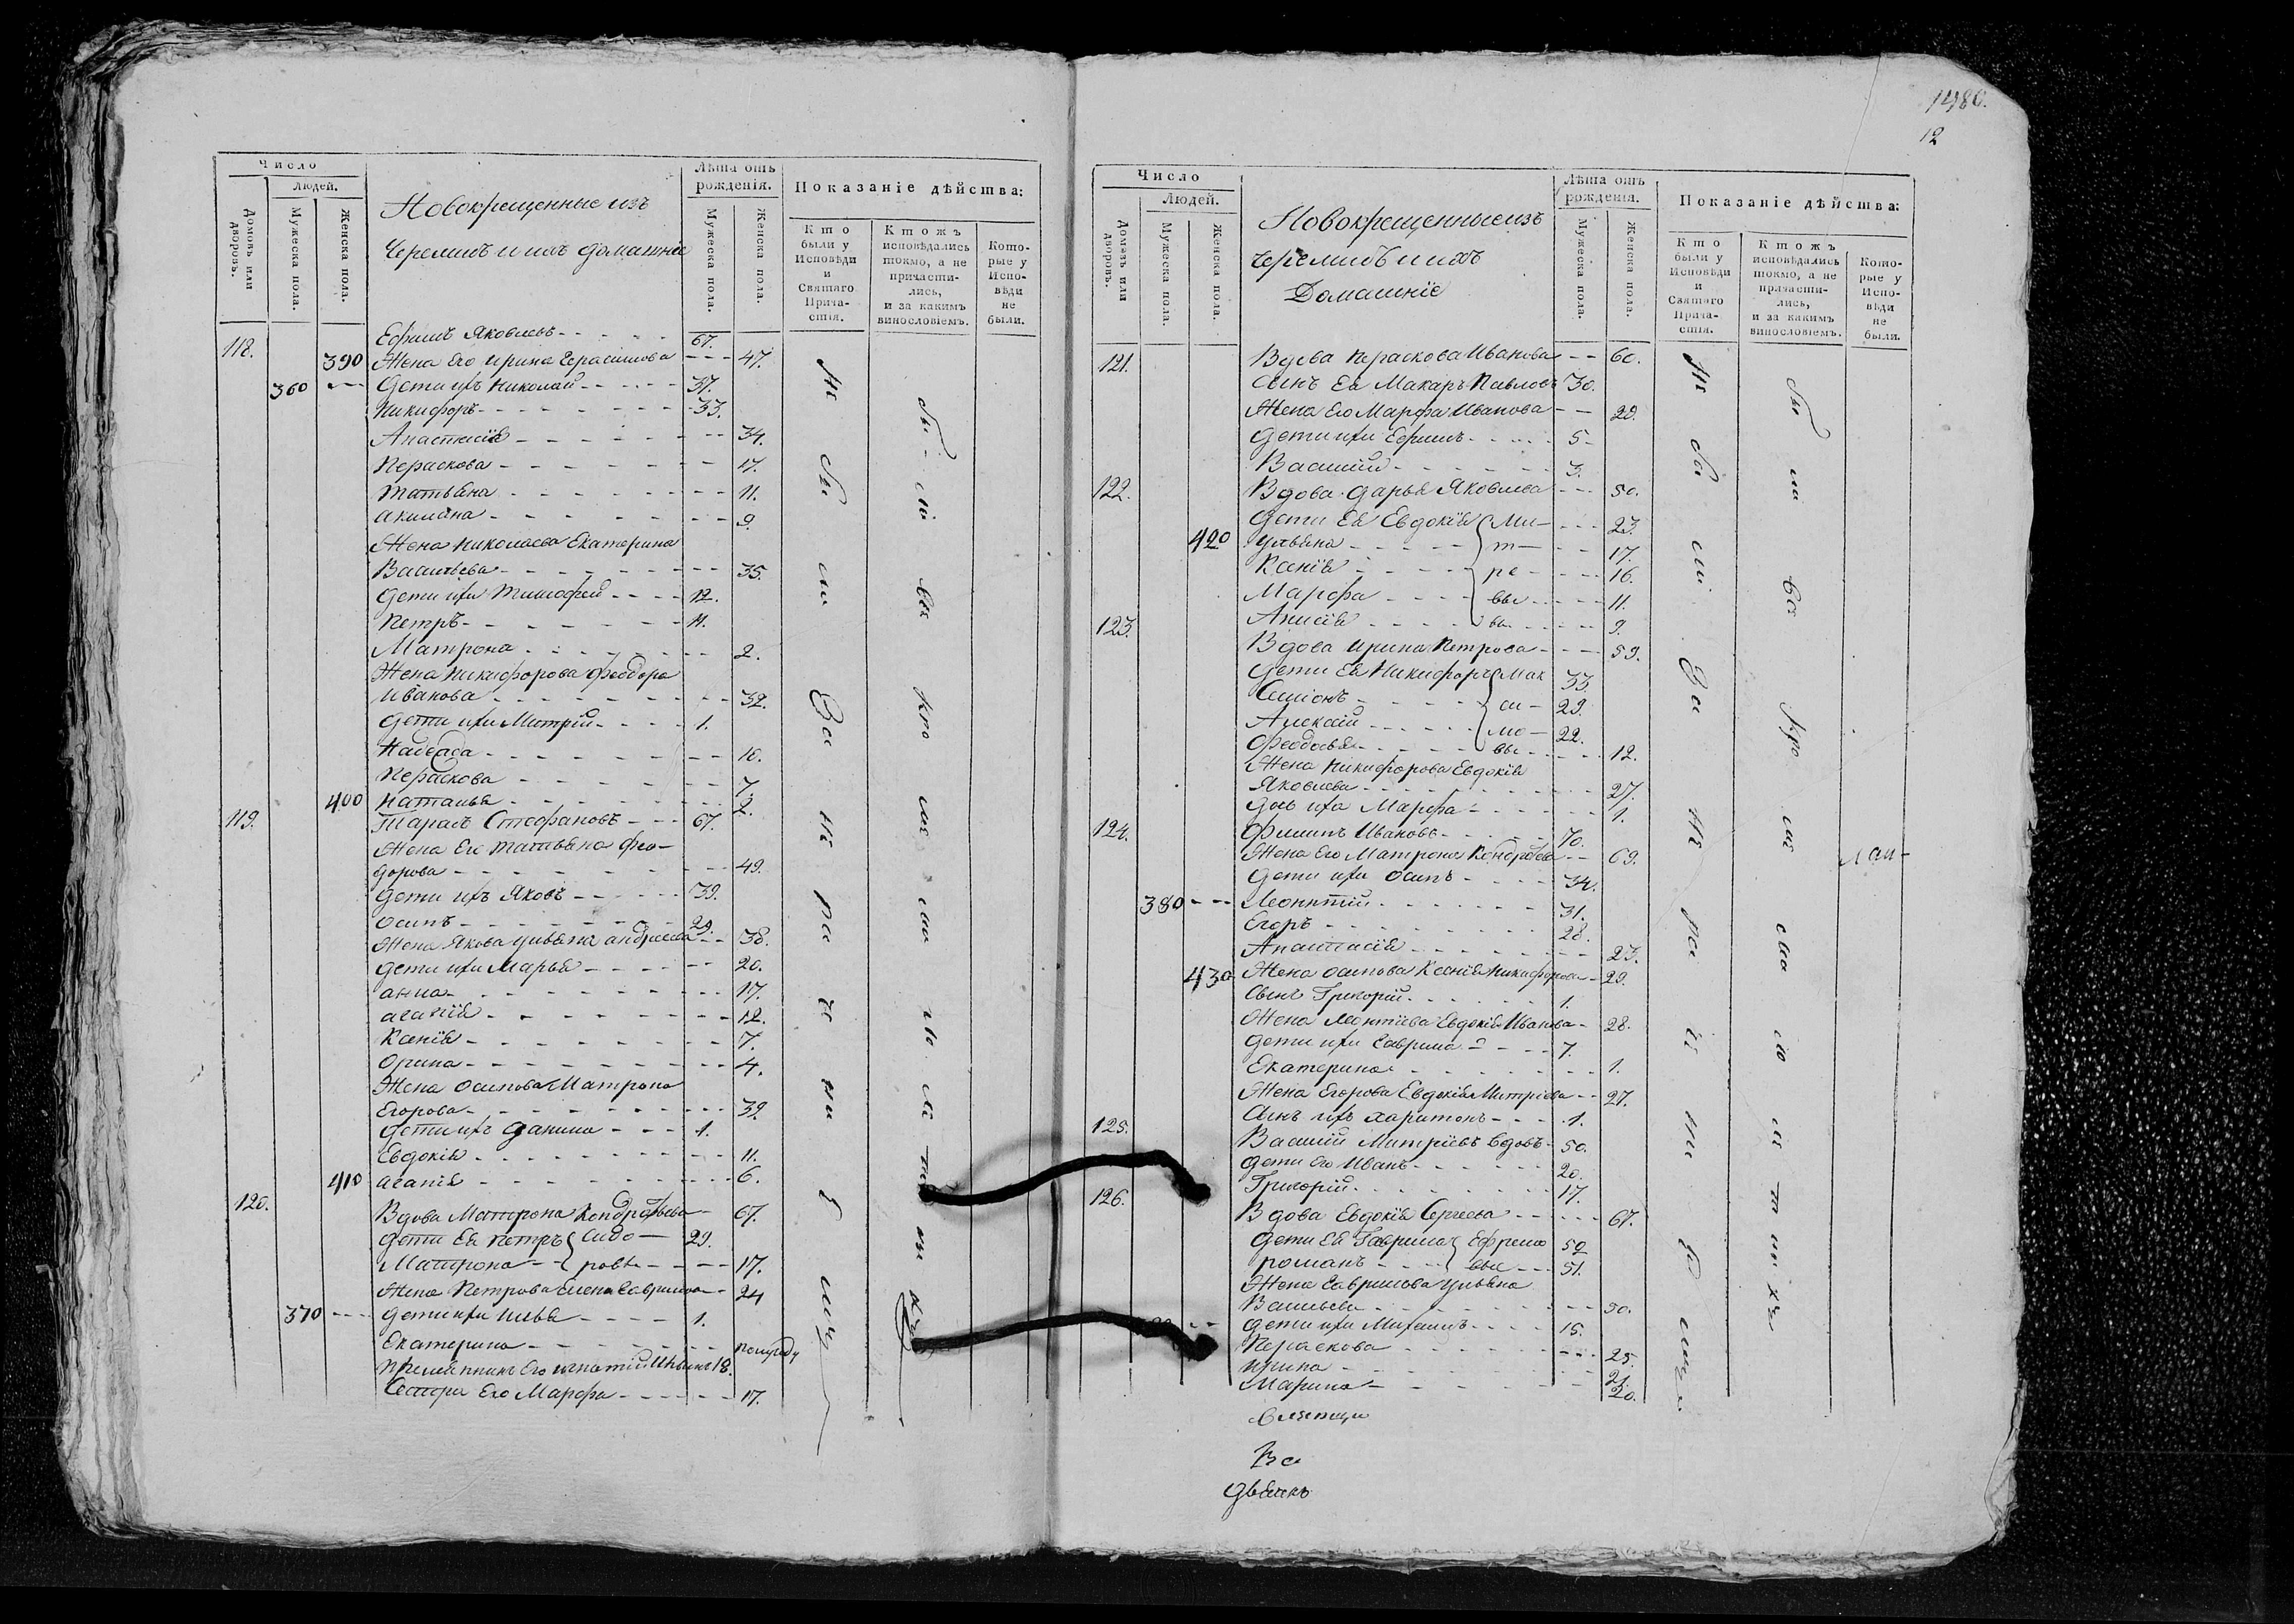 Число
Людей.
Домовъ или дворовъ.
Мужеска пола.
Женска пола.
Новокрещенные изъ
Черемисъ и ихъ домашніе
Лѣта отъ рожденія.
Мужеска пола.
Женска пола.
Показаніе дѣйства:
Кто были у Исповѣди и Святаго Причастія.
Ктожъ исповѣдались токмо, а не причастились, и за какимъ винословіемъ.
Которые у Исповѣди не были.
118. Ефимъ Яковлевъ 67.
390 Жена Его Ирина Герасимова 47.
360 Дети ихъ Николай 37.
Никифоръ 33.
Анастасія 34.
Пераскова 17.
Татьяна 11.
Акилина 9.
Жена Николаева Екатерина
Васильева 35.
Дети ихъ Тимофей 12.
Петръ 11.
Матрона 2.
Жена Никифорова Феодора
Иванова 32.
Дети ихъ Митрій 1.
Надежда 10.
Пераскова 7.
400 Наталья 2.
119. Тарасъ Стефановъ 67.
Жена Его Татьяна Фео-
дорова 49.
Дети ихъ Яковъ 39.
Осипъ 29.
Жена Якова Ульяна Андреева 38.
Дети ихъ Марья 20.
Анна 17.
Агапія 12.
Ксенія 7.
Орина 4.
Жена Осипова Матрона
Егорова 32.
Дети ихъ Данила 1.
Евдокія 11.
410 Агапія 6.
120. Вдова Матрона Кондратьева 67.
Дети Ея Петръ Сидо- 29.
Матрона ровы 17.
Жена Петрова Елена Гаврилова 24
370 Дети ихъ Илья 1.
Екатерина полугоду
Племянникъ Его Игнатій Ильинъ 18.
Сестра Его Марфа 17.
1480.
12
Число
Людей.
Домовъ или дворовъ.
Мужеска пола.
Женска пола.
Новокрещенные изъ
черемисъ и ихъ
Домашніе
Лѣта отъ рожденія.
Мужеска пола.
Женска пола.
Показаніе дѣйства:
Кто были у Исповѣди и Святаго Причастія.
Ктожъ исповѣдались токмо, а не причастились, и за какимъ винословіемъ.
Которые у Исповѣди не были.
121. Вдова Пераскова Иванова 60.
Сынъ Ея Макаръ Павловъ 30.
Жена Его Марфа Иванова 29.
Дети ихъ Ефимъ 5
Василій 3.
122. Вдова Дарья Яковлева 50.
Дети Ея Евдокія Ми- 23.
420 Ульяна т- 17.
Ксенія ре- 16.
Марфа 11.
Анисія вы 9.
123. Вдова Ирина Петрова 59.
Дети Ея Никифоръ Мак 33.
Симіонъ си- 29.
Алексій мо- 22.
Феодосья вы 12.
Жена Никифорова Евдокія
Яковлева 27.
Дочь ихъ Марфа 1.
124. Филипъ Ивановъ 70.
Жена Его Матрона Кондратьева 69.
Дети ихъ Осипъ 34.
380 Леонтій 31.
Егоръ 28.
Анастасія 23.
430 Жена Осипова Ксенія Никифорова 29.
Сынъ Григорій 1.
Жена Леонтіева Евдокія Иванова 28.
Дети ихъ Гаврила 7.
Екатерина 1.
Жена Егорова Евдокія Митріева 27.
Сынъ ихъ Харитонъ 1.
125. Василій Митріевъ вдовъ 50.
Дети Его Иванъ 20.
Григорій 17.
126. Вдова Евдокія Сергеева 67.
Дети Ея Гаврила Ефремо 52
Романъ вы 51.
Жена Гаврилова Ульяна
Васильева 50.
Дети ихъ Михаилъ 15.
Пераскова 25.
Ирина 21.
Марина 20.